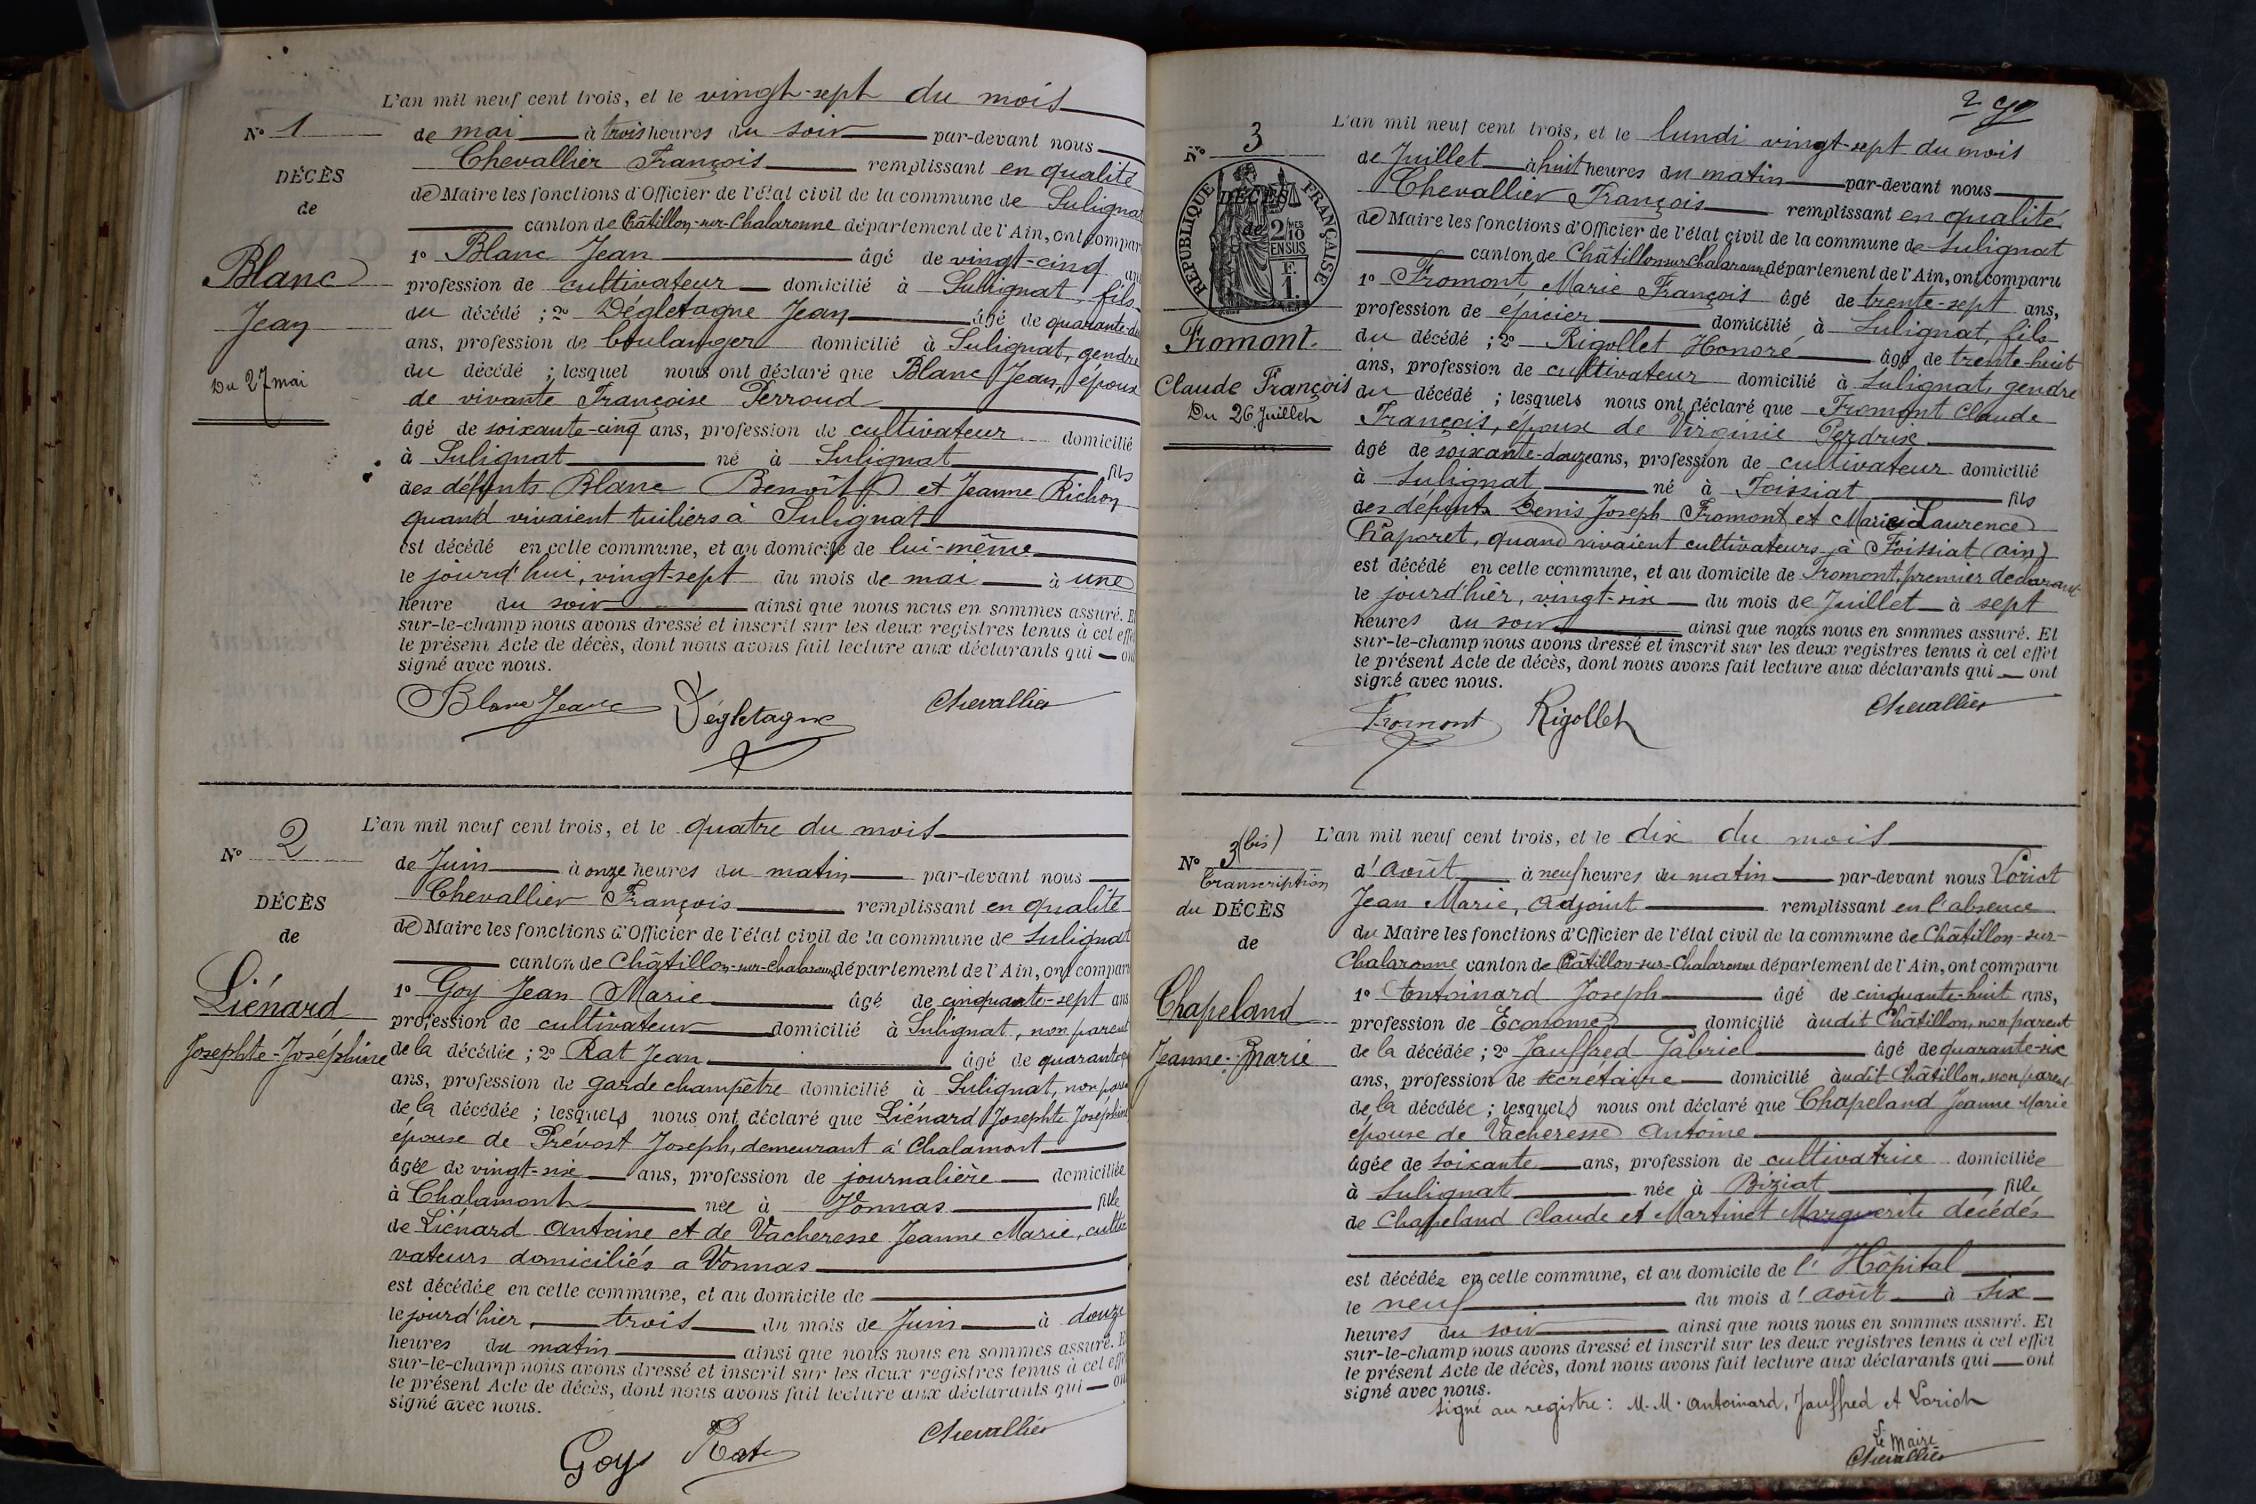 L'an mil neuf cent trois, et le vingt-sept du mois
N° 1
de mai à trois heures du soir par-devant nous
Chevallier François remplissant en qualité
DÉCÈS
de Maire les fonctions d'Officier de l'état civil de la commune de Sulignat
de
canton de Châtillon-sur-Chalaronne département de l'Ain, ont compar
1° Blanc Jean âgé de vingt-cinq an
Blanc
profession de cultivateur domicilié à Sulignat, fils
Jean
du décédé ; 2° Dégletagne Jean âgé de quarante-
ans, profession de boulanger domicilié à Sulignat, gendre
Du 27 mai
du décédé ; lesquel nous ont déclaré que Blanc Jean, époux
de vivante Françoise Perroud
âgé de soixante-cinq ans, profession de cultivateur domicilié
à Sulignat né à Sulignat fils
des défunts Blanc Benoît et Jeanne Richon
quand vivaient tuiliers à Sulignat
est décédé en cette commune, et au domicile de lui-même
le jourd'hui, vingt-sept du mois de mai à une
heure du soir ainsi que nous nous en sommes assuré. E
sur-le-champ nous avons dressé et inscrit sur les deux registres tenus à cet effe
le présent Acte de décès, dont nous avons fait lecture aux déclarants qui on
signé avec nous.
Blanc Jean Dégletagne Chevallier
L'an mil neuf cent trois, et le quatre du mois
N° 2
de Juin à onze heures du matin par-devant nous
Chevallier François remplissant en qualité
DÉCÈS
de Maire les fonctions d'Officier de l'état civil de la commune de Sulignat
de
canton de Châtillon-sur-Chalaronne département de l'Ain, ont compar
1° Goy Jean Marie âgé de cinquante-sept ans
Liénard
profession de cultivateur domicilié à Sulignat, non parent
Josephte-Joséphine
de la décédée ; 2° Rat Jean âgé de quarante
ans, profession de garde champêtre domicilié à Sulignat, non paren
de la décédée ; lesquels nous ont déclaré que Liénard Josephte Joséphine
épouse de Prévost Joseph, demeurant à Chalamont
âgée de vingt-six ans, profession de journalière domiciliée
à Chalamont née à Vonnas fille
de Liénard Antoine et de Vacheresse Jeanne Marie, culti
vateurs domiciliés a Vonnas
est décédée en cette commune, et au domicile de
le jourd'hier, trois du mois de Juin à douze
heures du matin ainsi que nous nous en sommes assuré. E
sur-le-champ nous avons dressé et inscrit sur les deux registres tenus à cet effe
le présent Acte de décès, dont nous avons fait lecture aux déclarants qui on
signé avec nous.
Goy Rat Chevallier
2
L'an mil neuf cent trois, et le lundi vingt-sept du mois
N° 3
de Juillet à huit heures du matin par-devant nous
RÉPUBLIQUE FRANÇAISE
DÉCÈS
de
2/10 EN SUS
1 F.
Chevallier François remplissant en qualité
de Maire les fonctions d'Officier de l'état civil de la commune de Sulignat
canton de Châtillon sur Chalaronne département de l'Ain, ont comparu
1° Fromont Marie François âgé de trente-sept ans,
profession de épicier domicilié à Sulignat, fils
Fromont
du décédé ; 2° Rigollet Honoré âgé de trente-huit
ans, profession de cultivateur domicilié à Sulignat, gendre
Claude François
du décédé ; lesquels nous ont déclaré que Fromont Claude
Du 26 Juillet
François, époux de Virginie Perdrix
âgé de soixante-douze ans, profession de cultivateur domicilié
à Sulignat né à Foissiat fils
des défunts Denis Joseph Fromont et Marie Laurence
Chaporet, quand vivaient cultivateurs à Foissiat (ain)
est décédé en cette commune, et au domicile de Fromont, premier déclarant
le jourd'hier, vingt-six du mois de Juillet à sept
heures du soir ainsi que nous nous en sommes assuré. Et
sur-le-champ nous avons dressé et inscrit sur les deux registres tenus à cet effet
le présent Acte de décès, dont nous avons fait lecture aux déclarants qui ont
signé avec nous.
Fromont Rigollet Chevallier
L'an mil neuf cent trois, et le dix du mois
N° 3 (bis)
d'août à neuf heures du matin par-devant nous Loriot
Transcription
Jean Marie, adjoint remplissant en l'absence
du DÉCÈS
du Maire les fonctions d'Officier de l'état civil de la commune de Châtillon-sur-
de
Chalaronne canton de Châtillon-sur-Chalaronne département de l'Ain, ont comparu
1° Antoinard Joseph âgé de cinquante-huit ans,
Chapeland
profession de Econome domicilié audit Châtillon, non parent
Jeanne-Marie
de la décédée ; 2° Jauffred Gabriel âgé de quarante-six
ans, profession de secrétaire domicilié audit Châtillon, non parent
de la décédée ; lesquels nous ont déclaré que Chapeland Jeanne Marie
épouse de Vacheresse Antoine
âgée de soixante ans, profession de cultivatrice domiciliée
à Sulignat née à Biziat fille
de Chapeland Claude et Martinet Marguerite décédés
est décédée en cette commune, et au domicile de l'Hôpital
le neuf du mois d'août à six
heures du soir ainsi que nous nous en sommes assuré. Et
sur-le-champ nous avons dressé et inscrit sur les deux registres tenus à cet effet
le présent Acte de décès, dont nous avons fait lecture aux déclarants qui ont
signé avec nous.
Signé au registre : M.M. Antoinard, Jauffred et Loriot
Le Maire
Chevallier